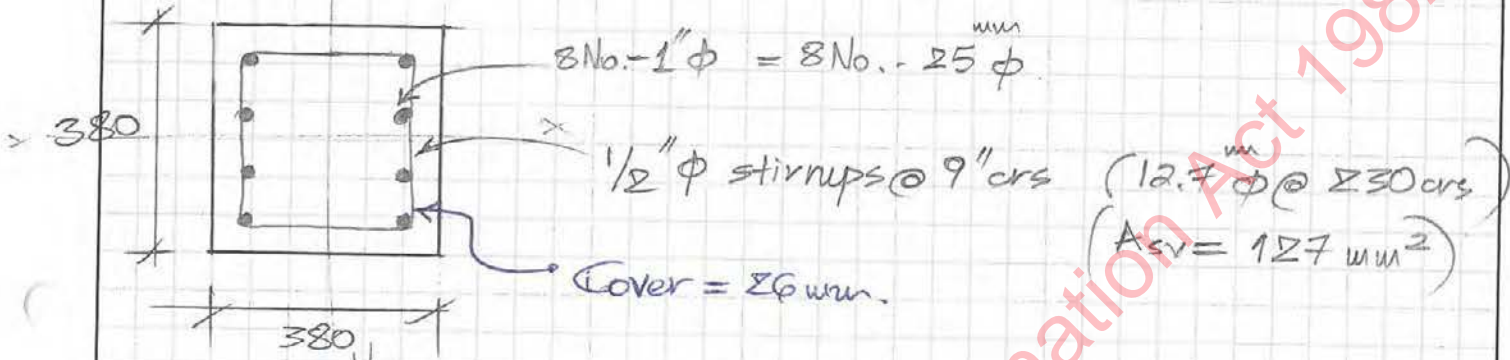 8No.-1"ϕ = 8No.-25mmϕ
380
1/2"ϕ stirrups @ 9"crs (12.7mmϕ @ 230crs)
(Asv = 127 mm²)
Cover = 26mm.
380
ation Act 198